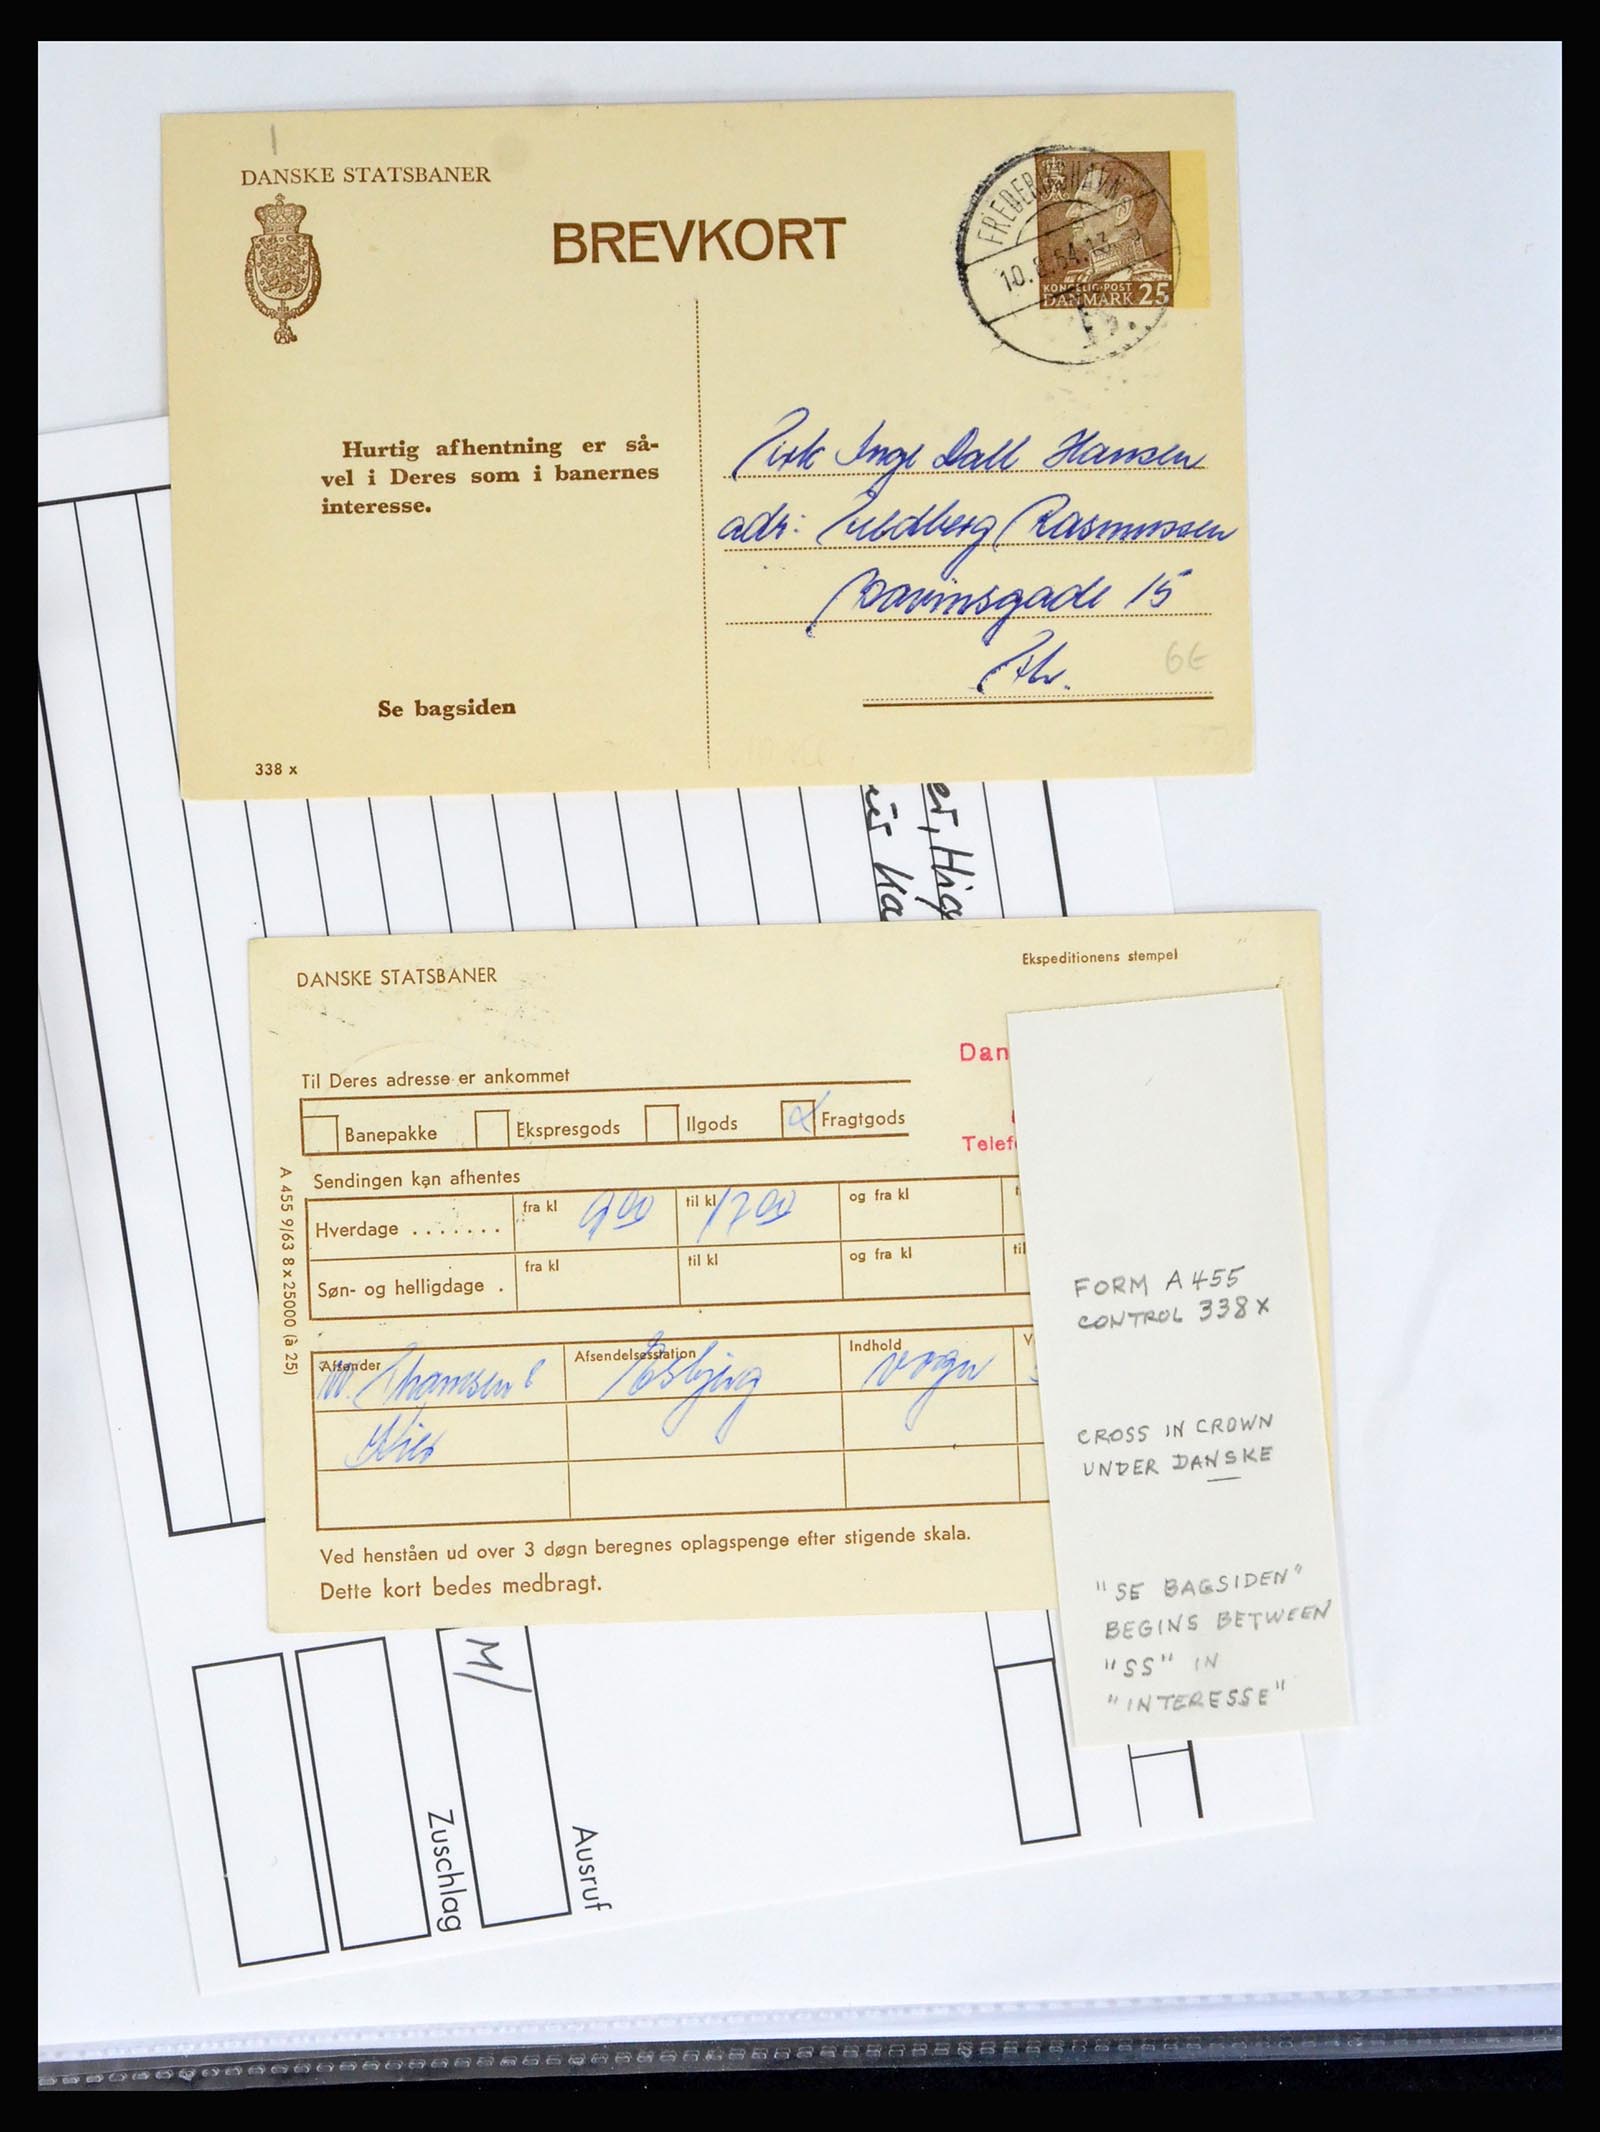 DANSKE STATSBANER
BREVKORT
FREDERIKSHAVN
KONGELIG POST
DANMARK 25
Hurtig afhentning er så-
vel i Deres som i banernes
interesse.
Inge Dall Hansen
adr: Rasmussen
15
6E
Se bagsiden
338 x
DANSKE STATSBANER
Ekspeditionens stempel
Dan
Telef
Til Deres adresse er ankommet
Banepakke Ekspresgods Ilgods Fragtgods
Sendingen kan afhentes
Hverdage ....... fra kl 900 til kl 17 00 og fra kl
Søn- og helligdage . fra kl til kl og fra kl til
A 455 9/63 8x25000 (à 25)
Afsender Afsendelsesstation Indhold V
Thomsen Esbjerg vogn
Ved henståen ud over 3 døgn beregnes oplagspenge efter stigende skala.
Dette kort bedes medbragt.
FORM A 455
CONTROL 338 X
CROSS IN CROWN
UNDER DANSKE
"SE BAGSIDEN"
BEGINS BETWEEN
"SS" IN
"INTERESSE"
M/
Zuschlag
Ausruf